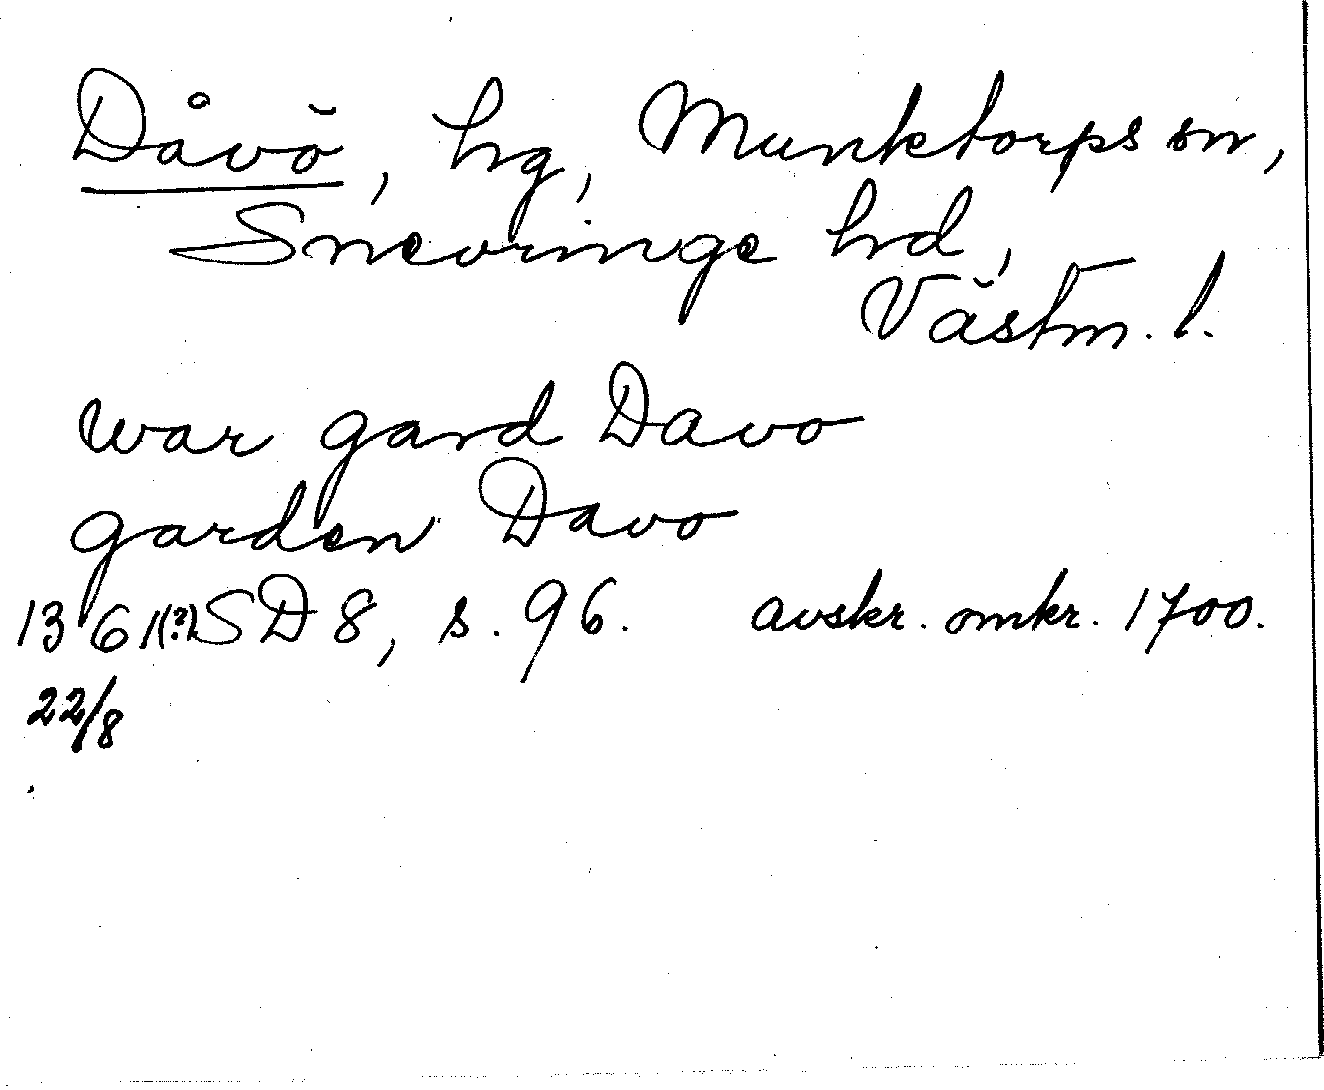 Dåvö, hg, Munktorps sn,
Snevringe hd,
Västm. l.
war gard Davo
garden Davo
1361(?) SD 8, s. 96. avskr. omkr. 1700.
22/8